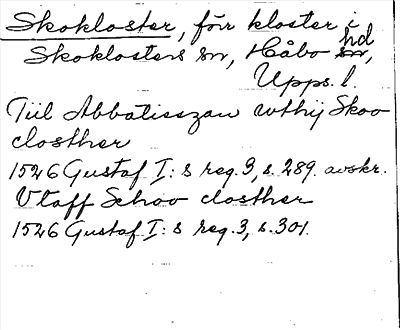 Skokloster, förr kloster i
Skoklosters sn, Håbo hd,
Upps. l.
Till Abbatisszan wthij Skoo
closther
1526 Gustaf I:s reg. 3, s. 289. avskr.
Vtaff Schoo closther
1526 Gustaf I:s reg. 3, s. 301.